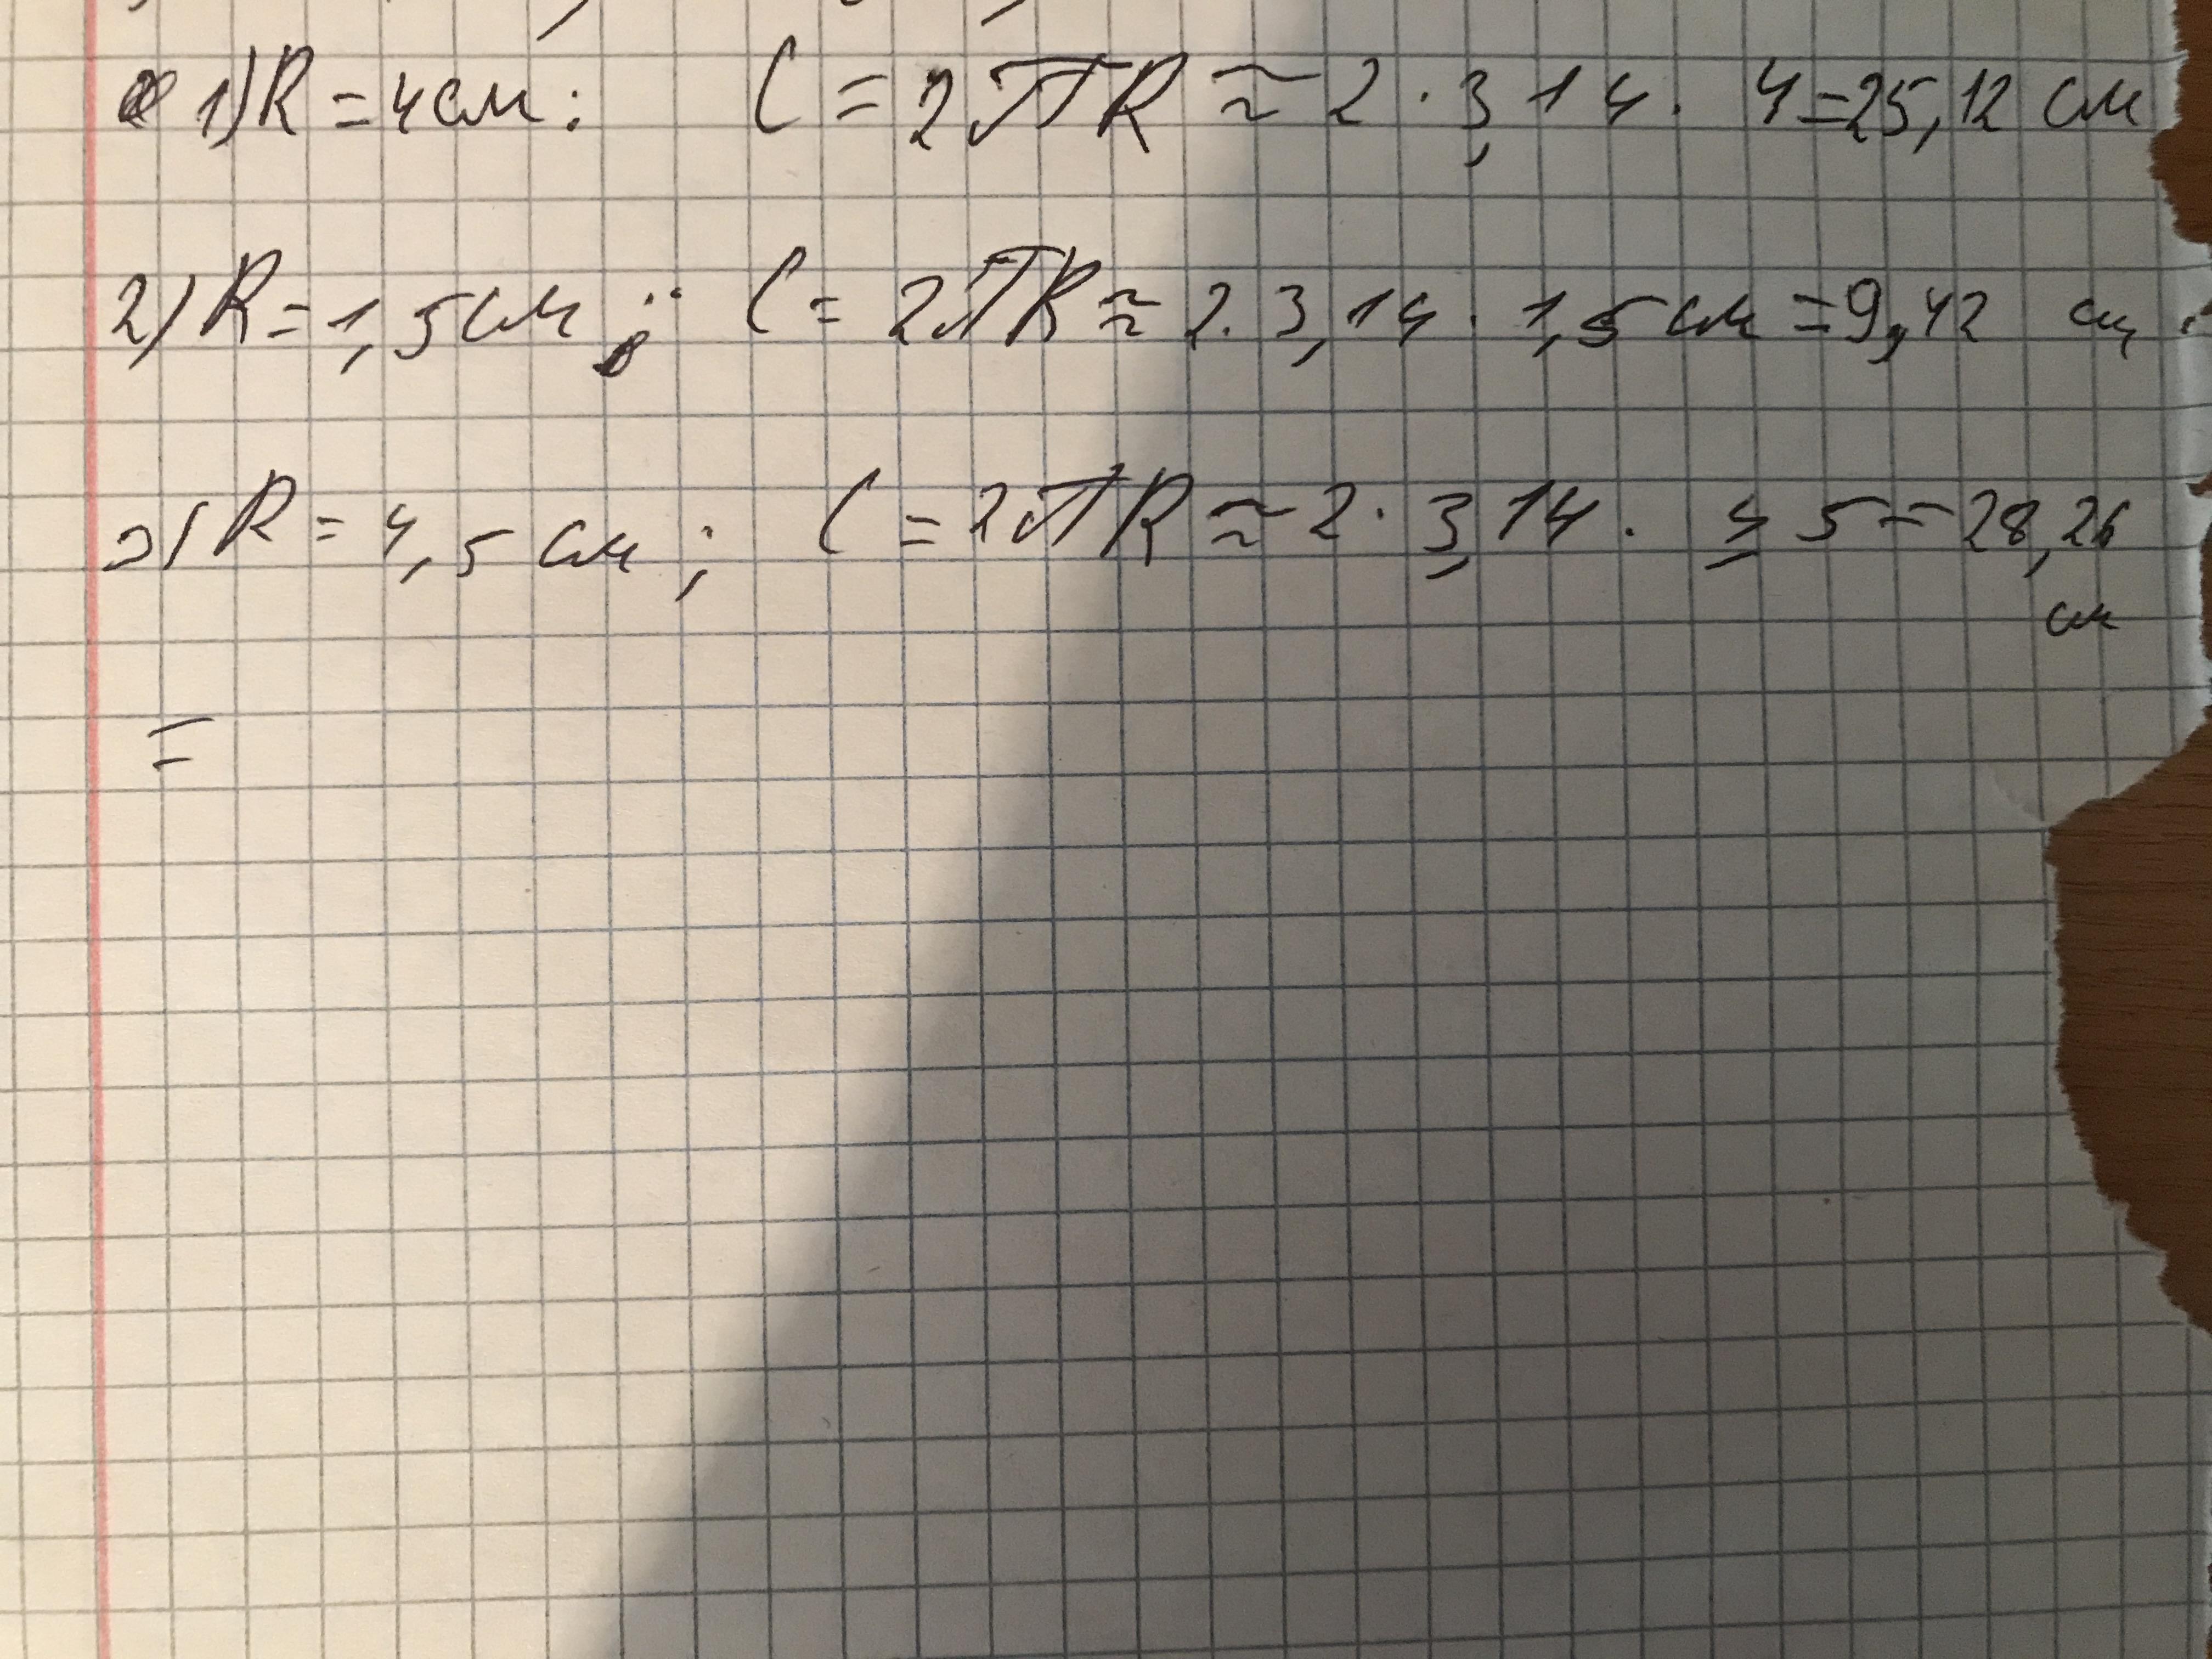 1) R = 4 см : C = 2πR ≈ 2 · 3,14 · 4 = 25,12 см
2) R = 1,5 см ; C = 2πR ≈ 2 · 3,14 · 1,5 см = 9,42 см
3) R = 4,5 см ; C = 2πR ≈ 2 · 3,14 · 4,5 = 28,26
см
=